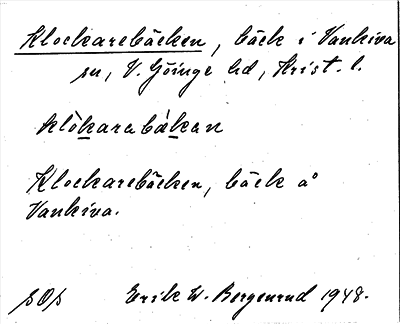 Klockarebäcken, bäck i Vankiva
sn, V. Göinge hd, Krist. l.
klòkarabákan
Klockarebäcken, bäck å
Vankiva.
SOS Erik W. Bergenrud 1948.